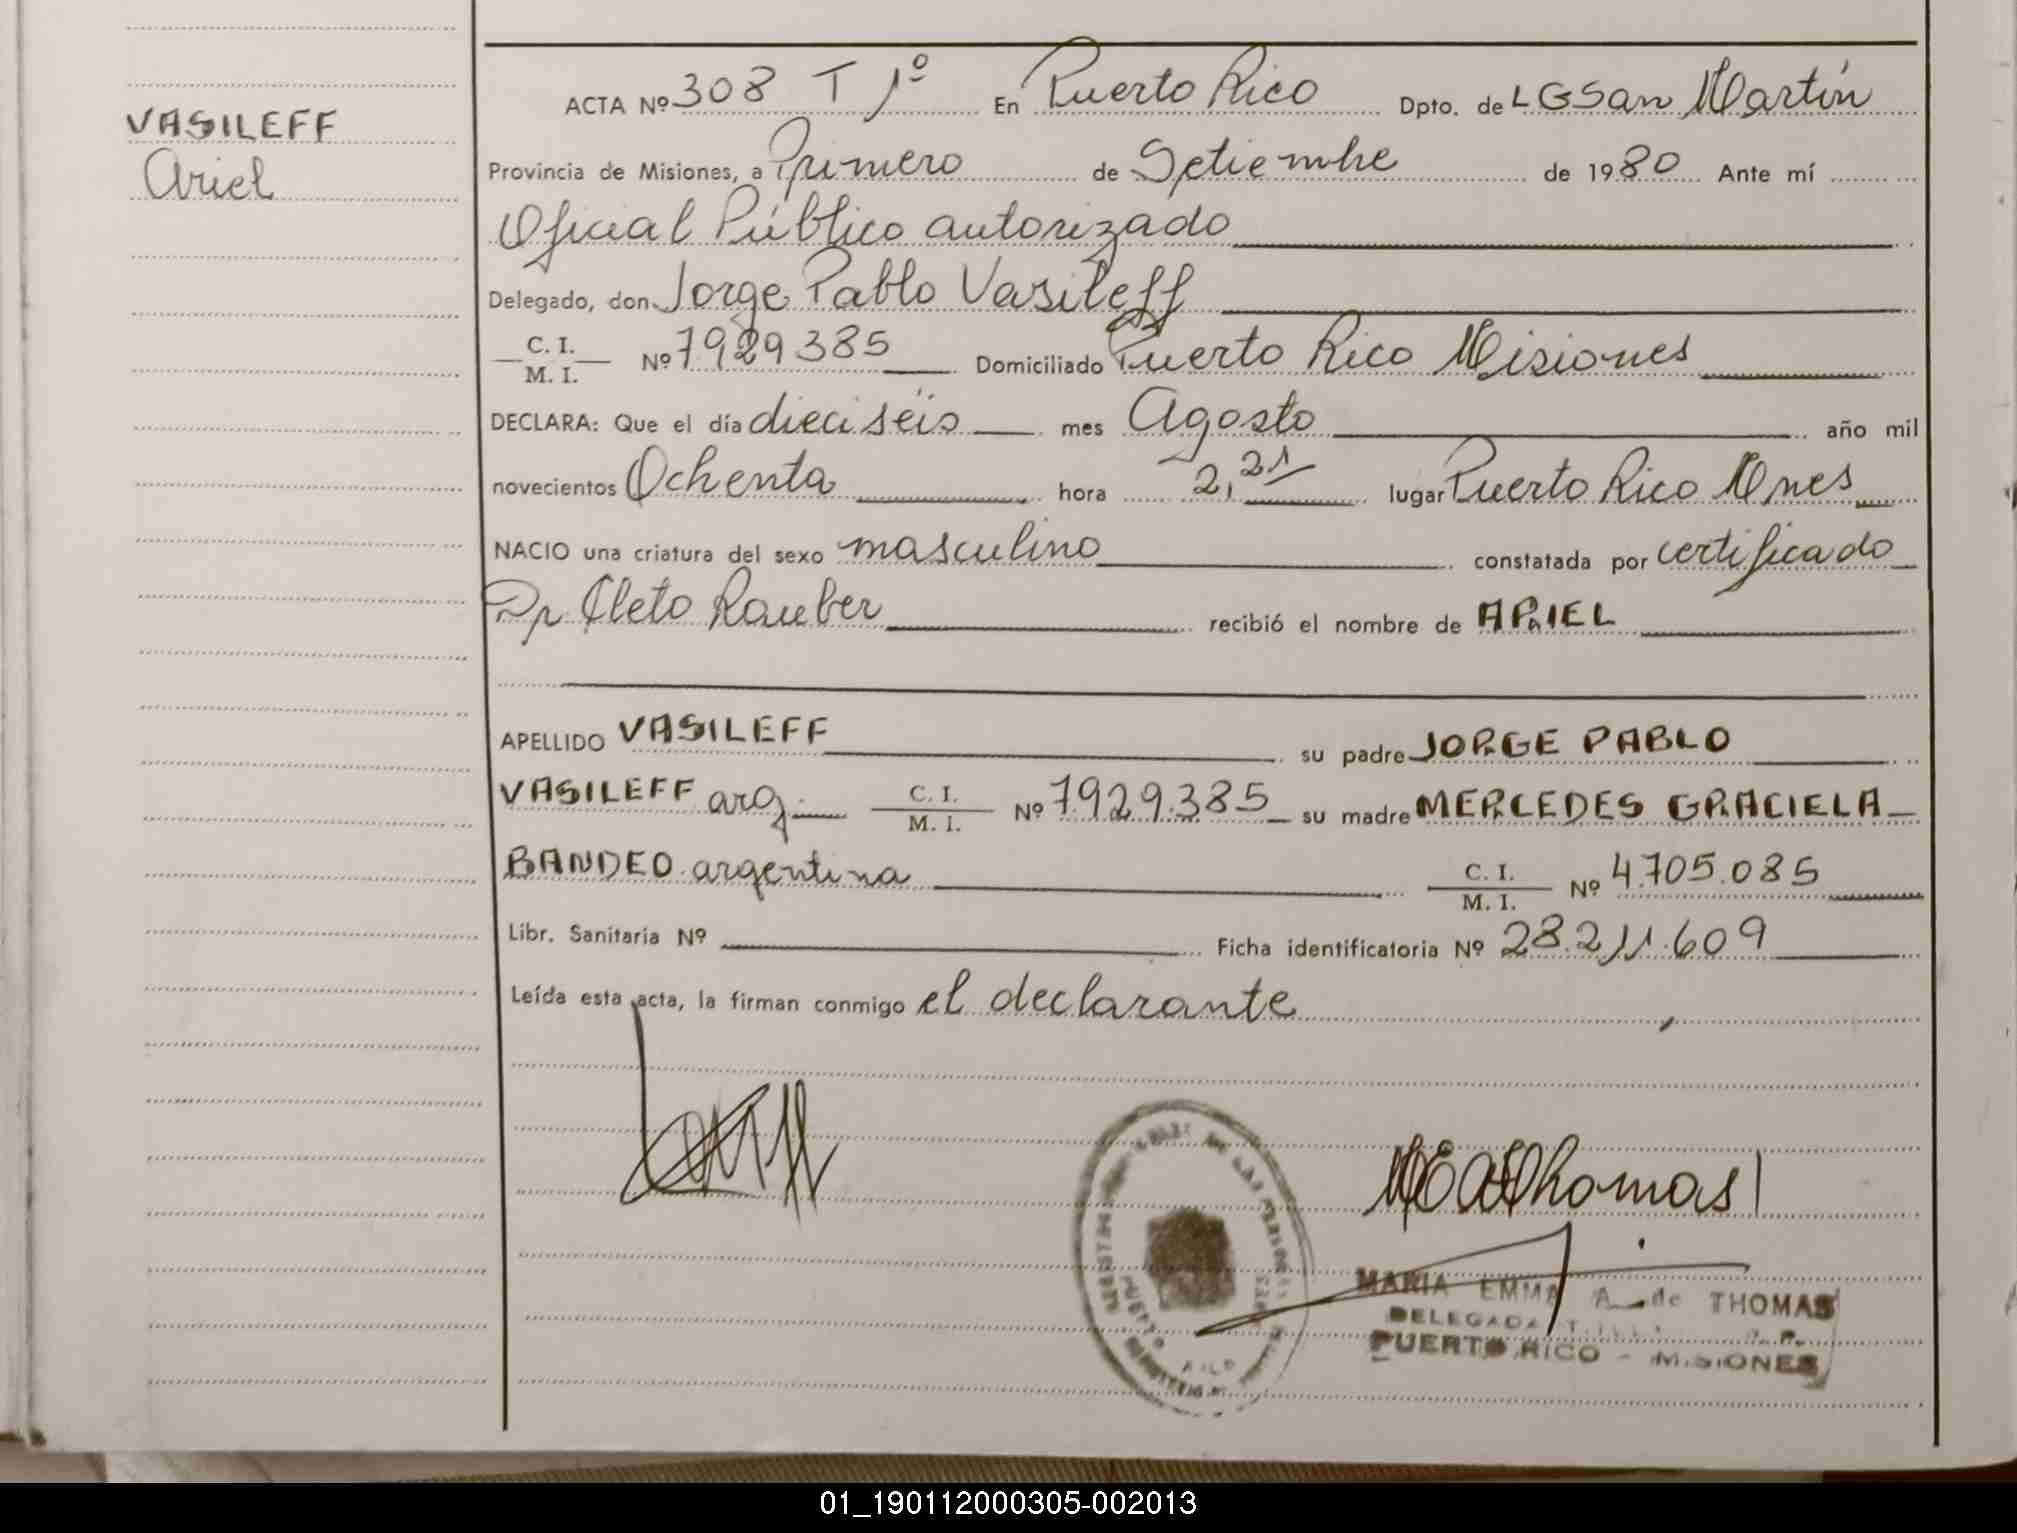 VASILEFF
Ariel
ACTA Nº 308 T 1º En Puerto Rico Dpto. de LGSan Martín
Provincia de Misiones, a Primero de Setiembre de 1980 Ante mí
Oficial Público autorizado
Delegado, don Jorge Pablo Vasileff
C. I. / M. I. Nº 7929385 Domiciliado Puerto Rico Misiones
DECLARA: Que el día dieciséis mes Agosto año mil
novecientos Ochenta hora 2,21 lugar Puerto Rico Mnes
NACIO una criatura del sexo masculino constatada por certificado
Dr Cleto Rauber recibió el nombre de ARIEL
APELLIDO VASILEFF su padre JORGE PABLO
VASILEFF arg. C. I. / M. I. Nº 7.929.385 su madre MERCEDES GRACIELA
BANDEO argentina C. I. / M. I. Nº 4.705.085
Libr. Sanitaria Nº Ficha identificatoria Nº 28.211.609
Leída esta acta, la firman conmigo el declarante
MEAThomas
MARIA EMMA A. de THOMAS
DELEGADA
PUERTO RICO - MISIONES
01_190112000305-002013